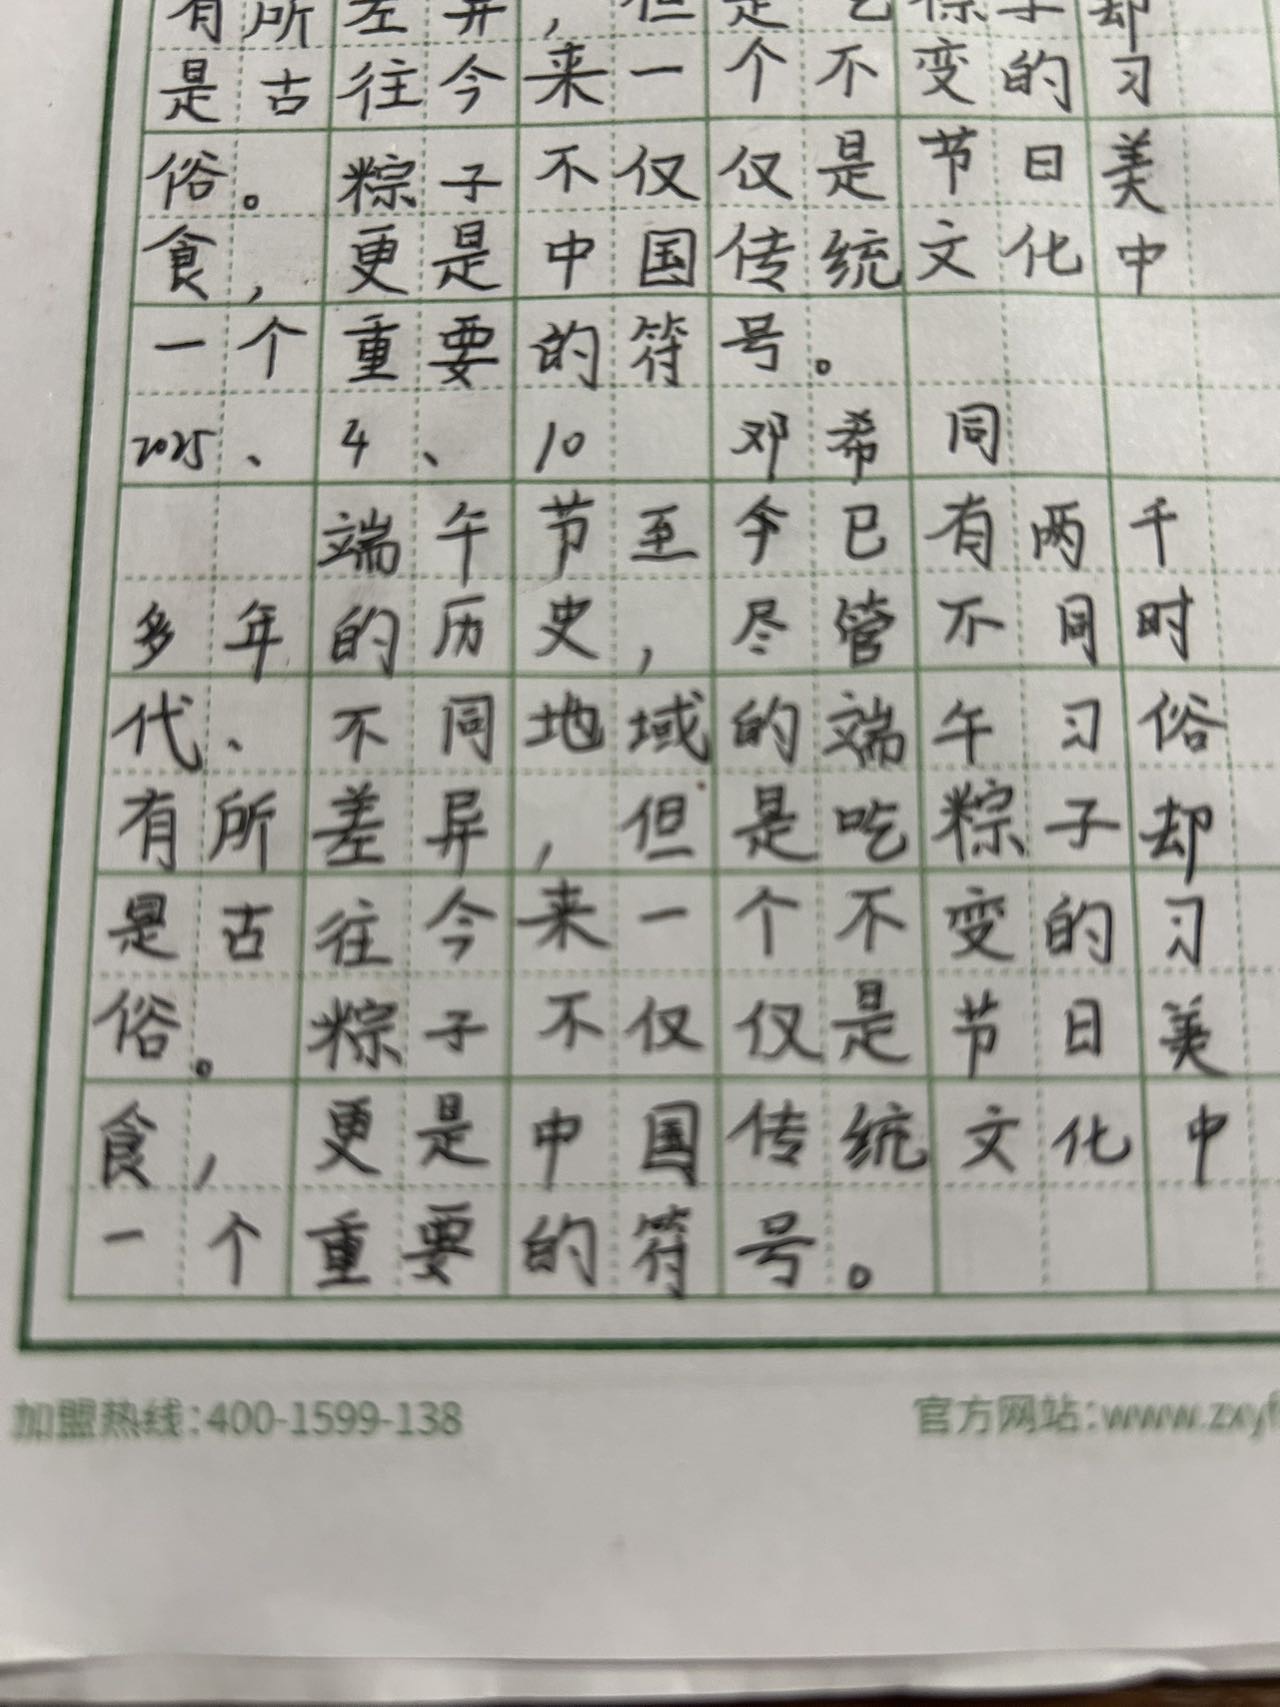 有所差异，但是吃粽子却
是古往今来一个不变的习
俗。粽子不仅仅是节日美
食，更是中国传统文化中
一个重要的符号。
2025、4、10 邓希同
端午节至今已有两千
多年的历史，尽管不同时
代、不同地域的端午习俗
有所差异，但是吃粽子却
是古往今来一个不变的习
俗。粽子不仅仅是节日美
食，更是中国传统文化中
一个重要的符号。
加盟热线:400-1599-138
官方网站:www.zxy